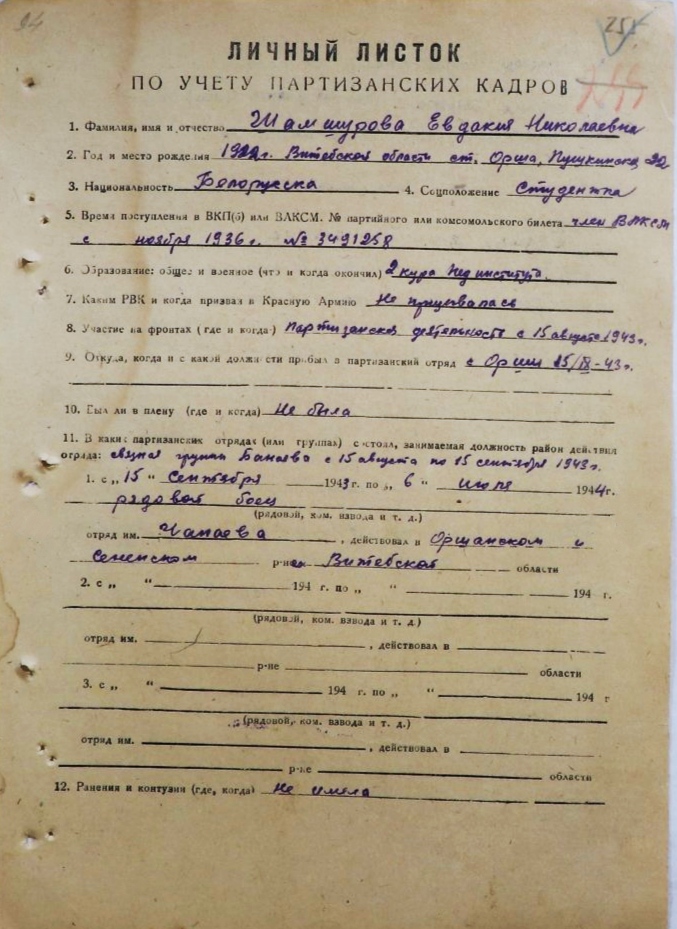 94
25
ЛИЧНЫЙ ЛИСТОК
ПО УЧЕТУ ПАРТИЗАНСКИХ КАДРОВ
1. Фамилия, имя и отчество Шамшурова Евдакия Николаевна
2. Год и место рождения Витебской области ст. Орша, Пушкинская, 20
3. Национальность Белорусска 4. Соцположение студентка
5. Время поступления в ВКП(б) или ВЛКСМ. № партийного или комсомольского билета член ВЛКСМ
с ноября 1936 г. № 3491258
6. Образование: общее и военное (что и когда окончил) 2 курса Пединститута.
7. Каким РВК и когда призван в Красную Армию Не призывалась
8. Участие на фронтах (где и когда) Партизанская деятельность с 15 августа 1943 г.
9. Откуда, когда и с какой должности прибыл в партизанский отряд с Орши 15/IX-43 г.
10. Был ли в плену (где и когда) Не была
11. В каких партизанских отрядах (или группах) состоял, занимаемая должность район действия
отряда: связная группы с 15 августа по 15 сентября 1943 г.
1. с „15 “ Сентября 1943 г. по „ 6 “ июля 1944 г.
рядовой боец
(рядовой, ком. взвода и т. д.)
отряд им. Чапаева , действовал в Оршанском и
Сененском р-нах Витебской области
2. с „ “ 194 г. по „ “ 194 г.
(рядовой, ком. взвода и т. д.)
отряд им. , действовал в
р-не области
3. с „ “ 194 г. по „ “ 194 г
(рядовой, ком. взвода и т. д.)
отряд им. , действовал в
р-не области
12. Ранения и контузия (где, когда) Не имела